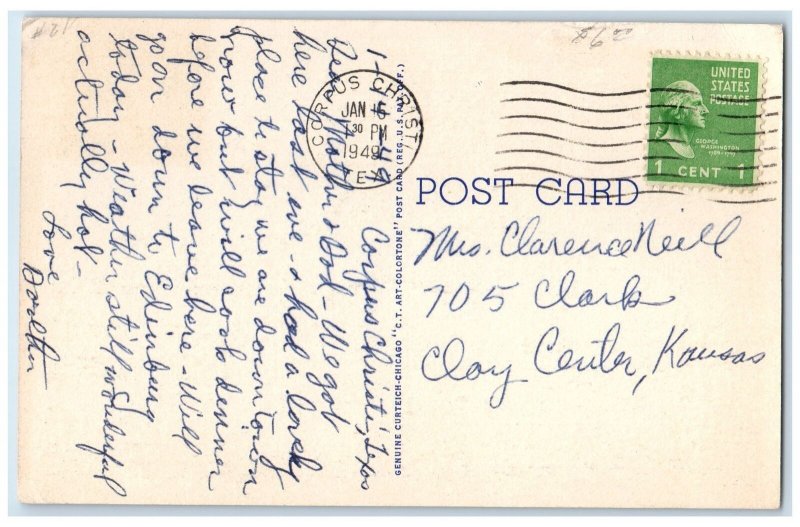 Corpus Christi, Texas
Dear Mother & Dad - We got
here last eve - & had a lovely
place to stay we are down town
now but will cook dinner
before we leave here - Will
go on down to Edinburg
today - Weather still wonderful
actually hot -
Love
Dorothy
CORPUS CHRISTI
JAN 16
1 30 PM
1949
TEX
GENUINE CURTEICH-CHICAGO "C.T. ART-COLORTONE" POST CARD (REG. U.S. PAT. OFF.)
UNITED
STATES
POSTAGE
GEORGE
WASHINGTON
1789-1797
1 CENT 1
POST CARD
Mrs. Clarence Neill
705 Clark
Clay Center, Kansas